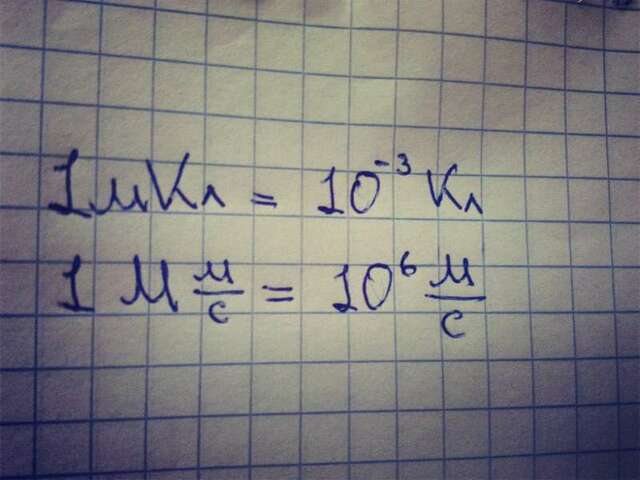 1 мКл = 10⁻³ Кл
1 М м/с = 10⁶ м/с